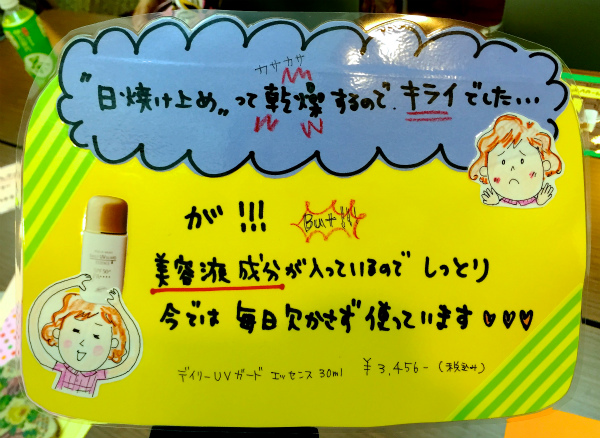 カサカサ
"日焼け止め"って乾燥するので、キライでした...
が!!! But!!!
美容液成分が入っているので しっとり
今では 毎日欠かさず使っています♡♡♡
デイリーUVガード エッセンス 30ml ¥3,456-(税込み)